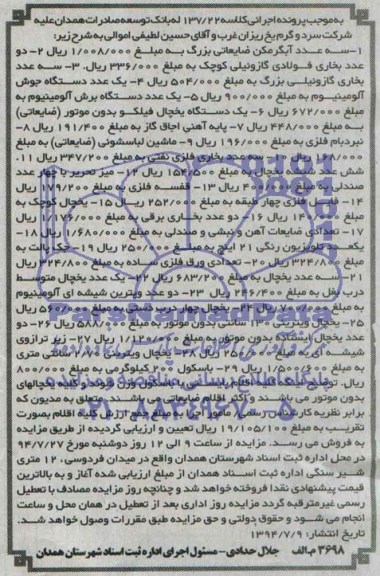 به موجب پرونده اجرائی کلاسه ۱۳۷/۲۲ له بانک توسعه صادرات همدان علیه
شرکت سرد و گرم یخ ریزان غرب و آقای حسین لطیفی اموالی به شرح زیر:
۱-سه عدد آبگرمکن ضایعاتی بزرگ به مبلغ ۱/۰۰۸/۰۰۰ ریال ۲- دو
عدد بخاری فولادی گازوئیلی کوچک به مبلغ ۳۳۶/۰۰۰ ریال. ۳- سه عدد
بخاری گازوئیلی بزرگ به مبلغ ۵۰۴/۰۰۰ ریال ۴- یک عدد دستگاه جوش
آلومینیوم به مبلغ ۹۰۰/۰۰۰ ریال ۵- یک عدد دستگاه برش آلومینیوم به
مبلغ ۶۷۲/۰۰۰ ریال ۶- یک دستگاه یخچال فیلکو بدون موتور (ضایعاتی)
به مبلغ ۴۴۸/۰۰۰ ریال ۷- پایه آهنی اجاق گاز به مبلغ ۱۹۱/۴۰۰ ۸-
نبردبام فلزی به مبلغ ۱۹۶/۰۰۰ ریال ۹- ماشین لباسشوئی (ضایعاتی) به مبلغ
ریال سه عدد بخاری فلزی نفتی به مبلغ ۳۴۷/۲۰۰ ریال ۱۱-
شش عدد شیشه یخچال به مبلغ ریال ۱۲- میز تحریر با چهار عدد
صندلی به مبلغ ریال ۱۳- قفسه فلزی به مبلغ ۱۷۹/۲۰۰ ریال
۱۴- قفسه فلزی چهار طبقه به مبلغ ۲۵۲/۰۰۰ ریال ۱۵- یخچال کوچک به
مبلغ ریال ۱۶- دو عدد بخاری برقی به مبلغ ریال
۱۷- تعدادی ضایعات آهن و نبشی و صندلی به مبلغ ۱/۶۸۰/۰۰۰ ریال ۱۸-
یک عدد تلویزیون رنگی ۲۱ اینچ به مبلغ ریال ۱۹- جک پالت به
مبلغ ۳۲۴/۸۰۰ ریال ۲۰- تعدادی ورق فلزی ساده به مبلغ ۳۲۴/۸۰۰ ریال
۲۱- سه عدد یخچال به مبلغ ۶۸۳/۲۰۰ ریال ۲۲- یک عدد یخچال متوسط
درب بغل به مبلغ ۲۴۶/۴۰۰ ریال ۲۳- دو عدد ویترین شیشه ای آلومینیوم
به مبلغ ریال ۲۴- یخچال چهار درب دستی به مبلغ ۵۶۰/۰۰۰ ریال
۲۵- یخچال ویترینی ۱۳۰ سانتی بدون موتور به مبلغ ۵۸۸/۰۰۰ ریال ۲۶- دو
عدد یخچال ایستاده بدون موتور به مبلغ ریال ۲۷- زیر ترازوی
شیشه ای به مبلغ ریال ۲۸- یخچال ویترینی ۱۷۰ سانتی متری
به مبلغ ریال ۲۹- باسکول ۲۰۰ کیلوگرمی به مبلغ ۸۰۰/۰۰۰
ریال. توضیح اینکه اقلام به استثنای باسکول وزن فرسوده و کلیه یخچالهای
بدون موتور می باشند و اکثر اقلام ضایعاتی می باشند. متعلق به مدیون که
برابر نظریه کارشناس رسمی مأمور اجرا به مبلغ جمع ارزش کلیه اقلام بصورت
تقریب به مبلغ ۱۹/۱۰۵/۱۰۰ ریال تعیین و ارزیابی گردیده از طریق مزایده
به فروش می رسد. مزایده از ساعت ۹ الی ۱۲ روز دوشنبه مورخ ۹۴/۷/۲۷
در محل اداره ثبت اسناد شهرستان همدان واقع در میدان فردوسی، ۱۲ متری
شیر سنگی اداره ثبت اسناد همدان از مبلغ ارزیابی شده آغاز و به بالاترین
قیمت پیشنهادی نقدا فروخته خواهد شد و چنانچه روز مزایده مصادف با تعطیل
رسمی غیرمترقبه گردد مزایده روز اداری بعد از تعطیل در همان محل و ساعت
انجام می شود و حقوق دولتی و حق مزایده طبق مقررات وصول خواهد شد.
تاریخ انتشار: ۱۳۹۴/۷/۹
۳۶۹۸ م.الف جلال حدادی – مسئول اجرای اداره ثبت اسناد شهرستان همدان